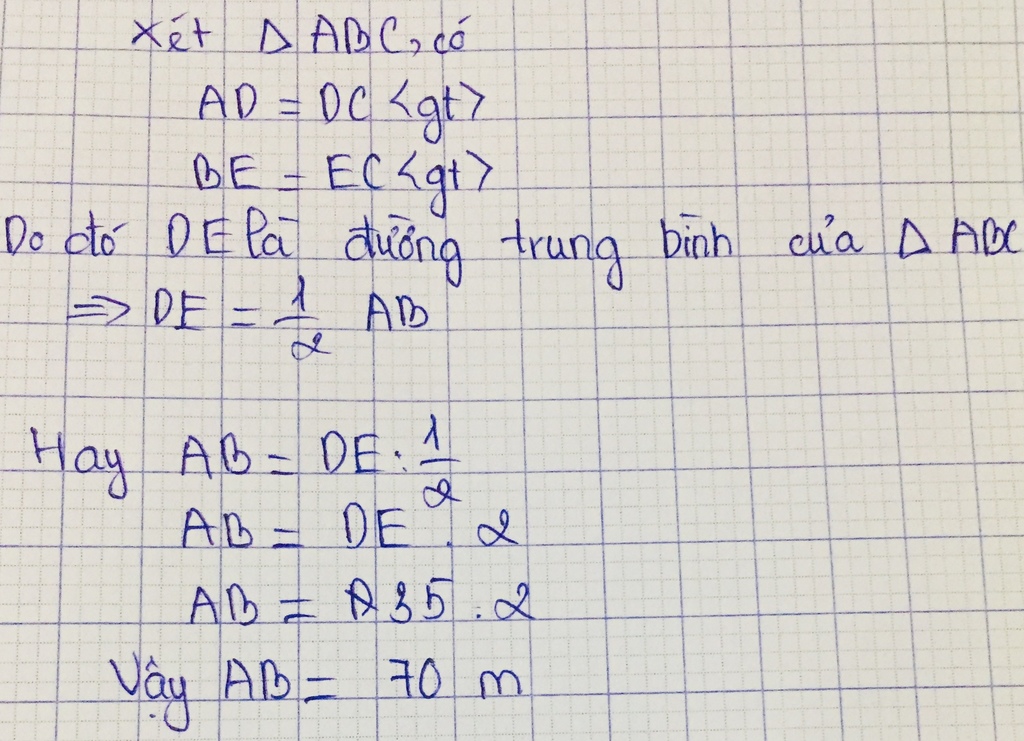 Xét Δ ABC, có
AD = DC <gt>
BE = EC <gt>
Do đó DE là đường trung bình của Δ ABC
=> DE = 1/2 AB
Hay AB = DE : 1/2
AB = DE . 2
AB = 35 . 2
Vậy AB = 70 m